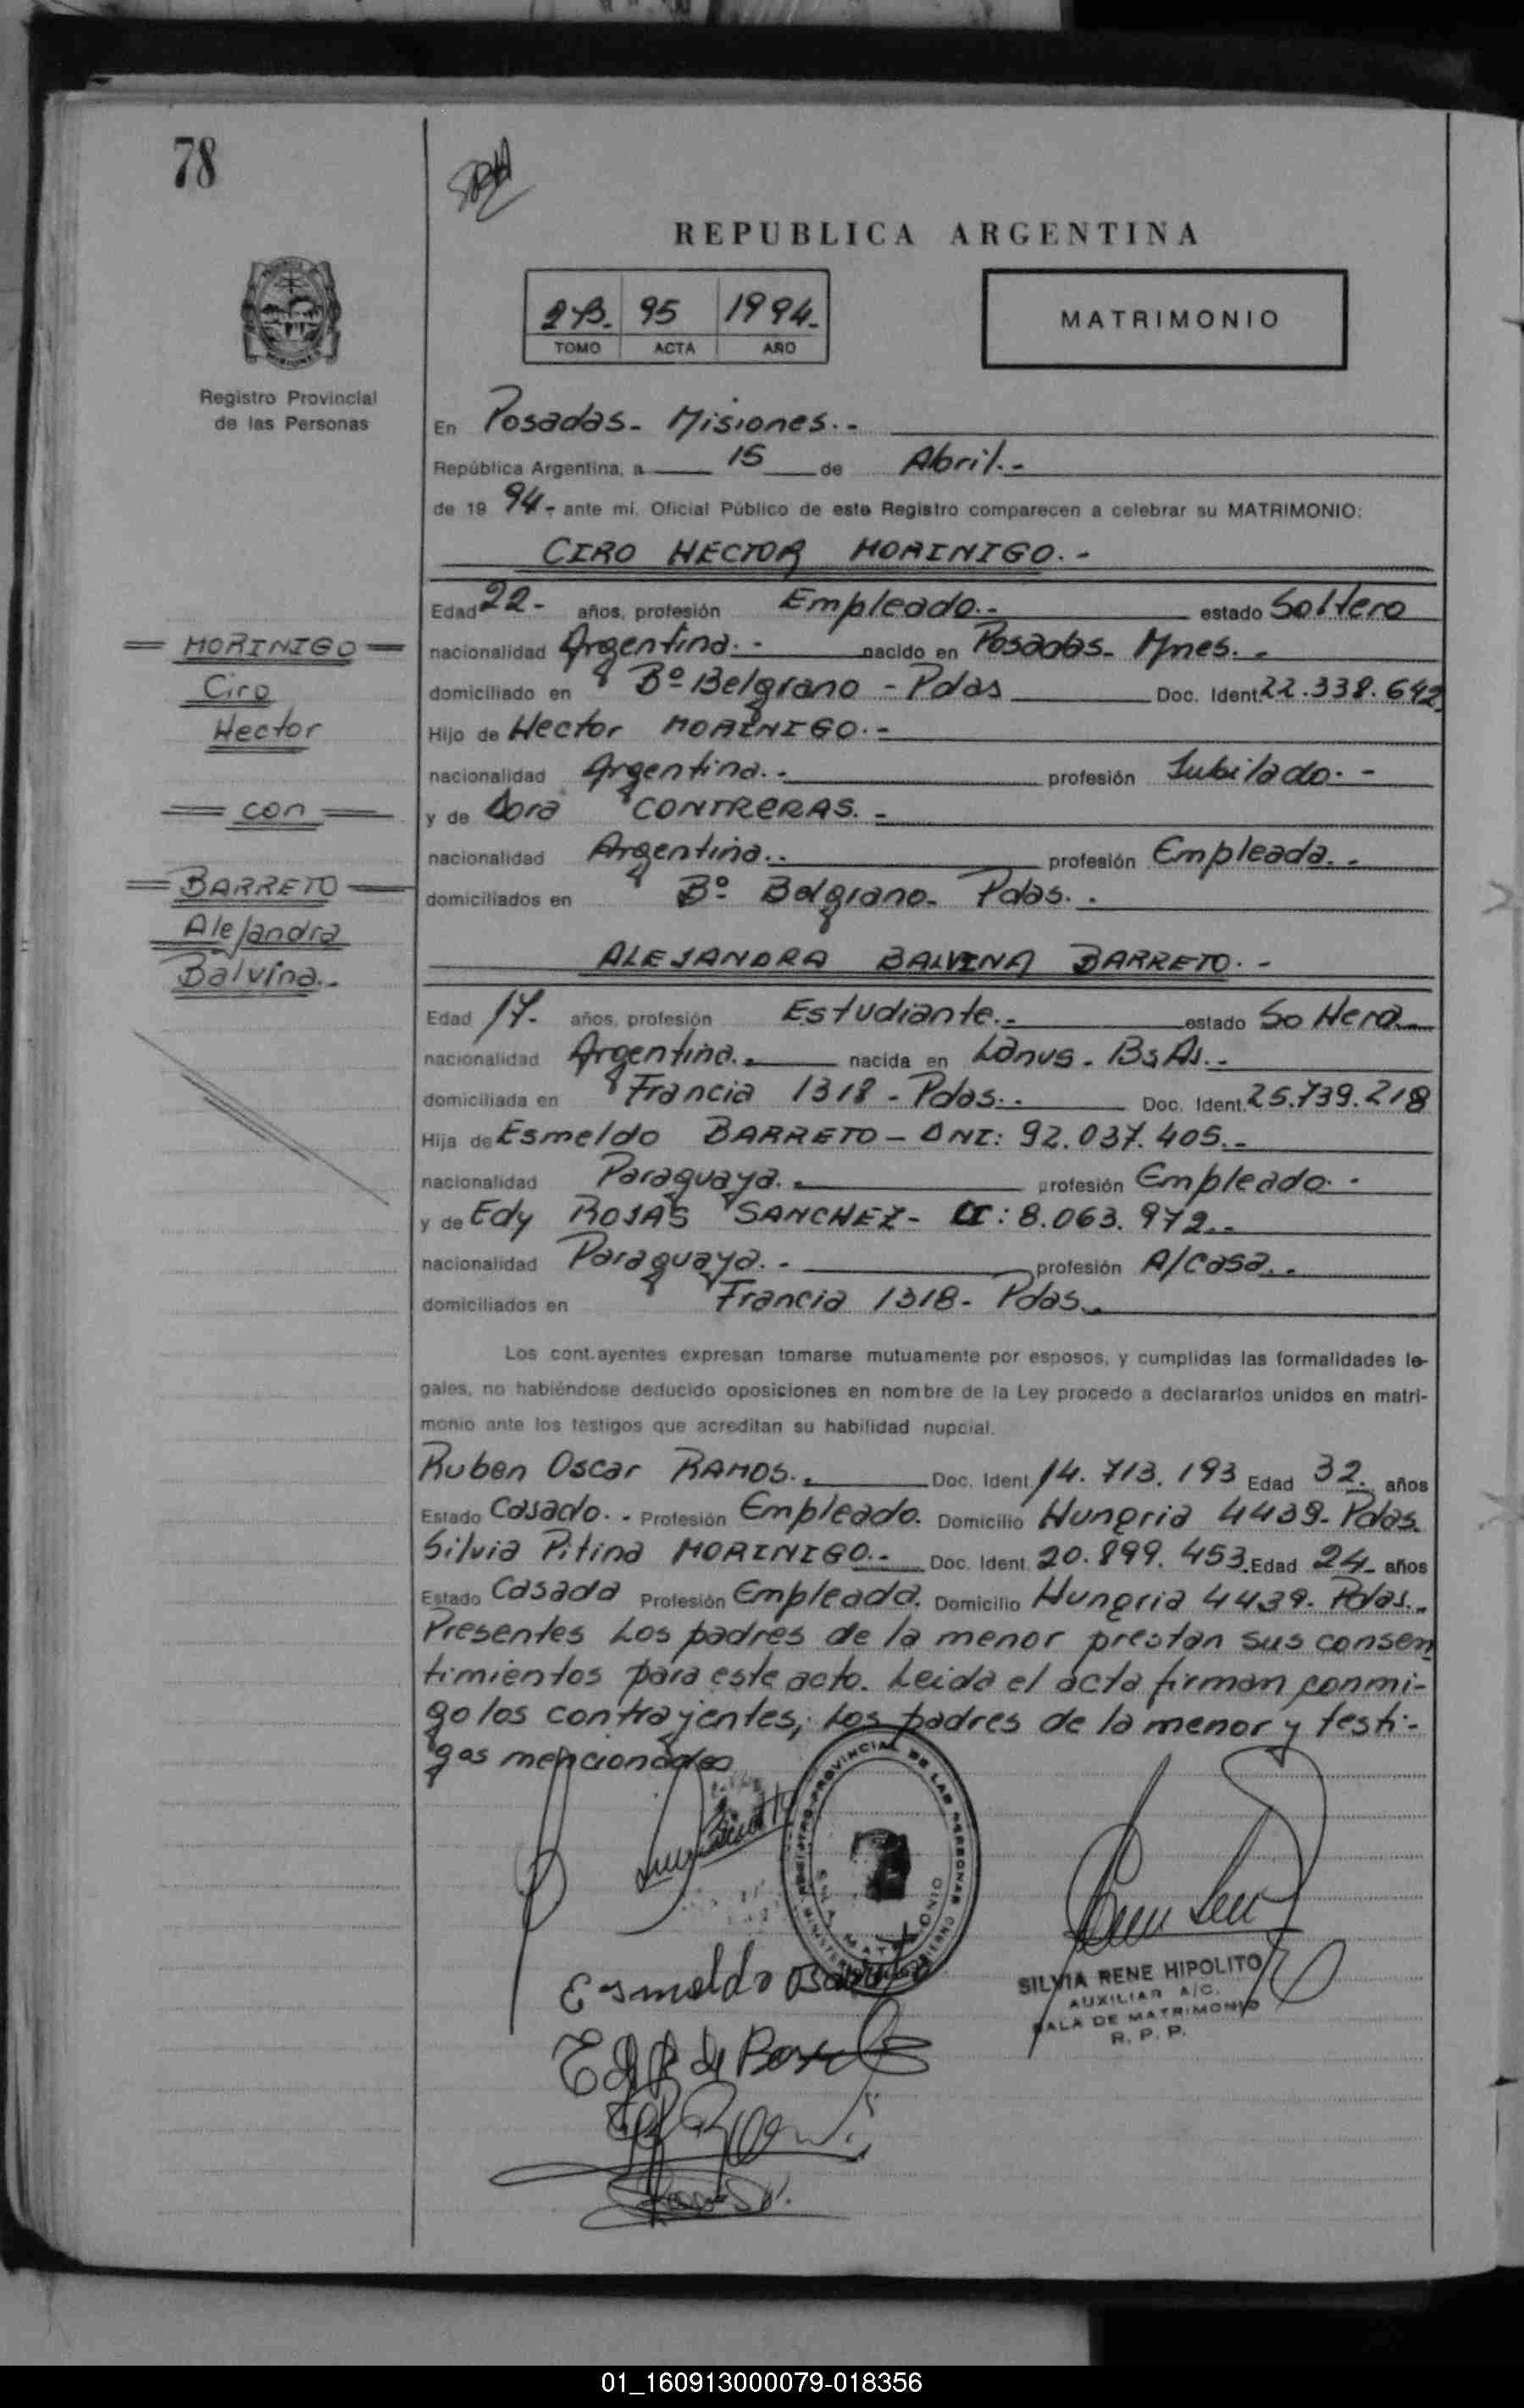 78
REPUBLICA ARGENTINA
2B. 95 1994.
TOMO ACTA AÑO
MATRIMONIO
Registro Provincial
de las Personas
En Posadas- Misiones.-
República Argentina, a 15 de Abril.-
de 19 94- ante mí, Oficial Público de este Registro comparecen a celebrar su MATRIMONIO:
CIRO HECTOR MORINIGO.-
Edad 22- años, profesión Empleado.- estado Soltero
= MORINIGO =
nacionalidad Argentina.- nacido en Posadas- Mnes.-
Ciro
domiciliado en Bº Belgrano - Pdas Doc. Ident. 22.338.642
Hector
Hijo de Hector MORINIGO.-
nacionalidad Argentina.- profesión Jubilado.-
= con =
y de Dora CONTRERAS.-
nacionalidad Argentina.. profesión Empleada.-
= BARRETO =
domiciliados en Bº Belgrano- Pdas..
Alejandra
ALEJANDRA BALVINA BARRETO.-
Balvina..
Edad 17- años, profesión Estudiante.- estado Soltera
nacionalidad Argentina.. nacida en Lanus- BsAs.-
domiciliada en Francia 1318 - Pdas.. Doc. Ident. 25.739.218
Hija de Esmeldo BARRETO - DNI: 92.037.405.-
nacionalidad Paraguaya.. profesión Empleado.
y de Edy ROJAS SANCHEZ- CI: 8.063.972..
nacionalidad Paraguaya.- profesión A/casa..
domiciliados en Francia 1318- Pdas..
Los contrayentes expresan tomarse mutuamente por esposos, y cumplidas las formalidades le-
gales, no habiéndose deducido oposiciones en nombre de la Ley procedo a declararlos unidos en matri-
monio ante los testigos que acreditan su habilidad nupcial.
Ruben Oscar RAMOS.. Doc. Ident. 14.713.193 Edad 32. años
Estado Casado.. Profesión Empleado. Domicilio Hungria 4439- Pdas.
Silvia Pitina MORINIGO.- Doc. Ident. 20.899.453. Edad 24- años
Estado Casada Profesión Empleada. Domicilio Hungria 4439- Pdas..
Presentes Los padres de la menor prestan sus consen
timientos para este acto. Leida el acta firman conmi-
go los contrayentes, Los padres de la menor y testi-
gos mencionados
REGISTRO PROVINCIAL DE LAS PERSONAS
SALA MATRIMONIO
Esmeldo Barreto
SILVIA RENE HIPOLITO
AUXILIAR A/C.
SALA DE MATRIMONIO
R. P. P.
01_160913000079-018356